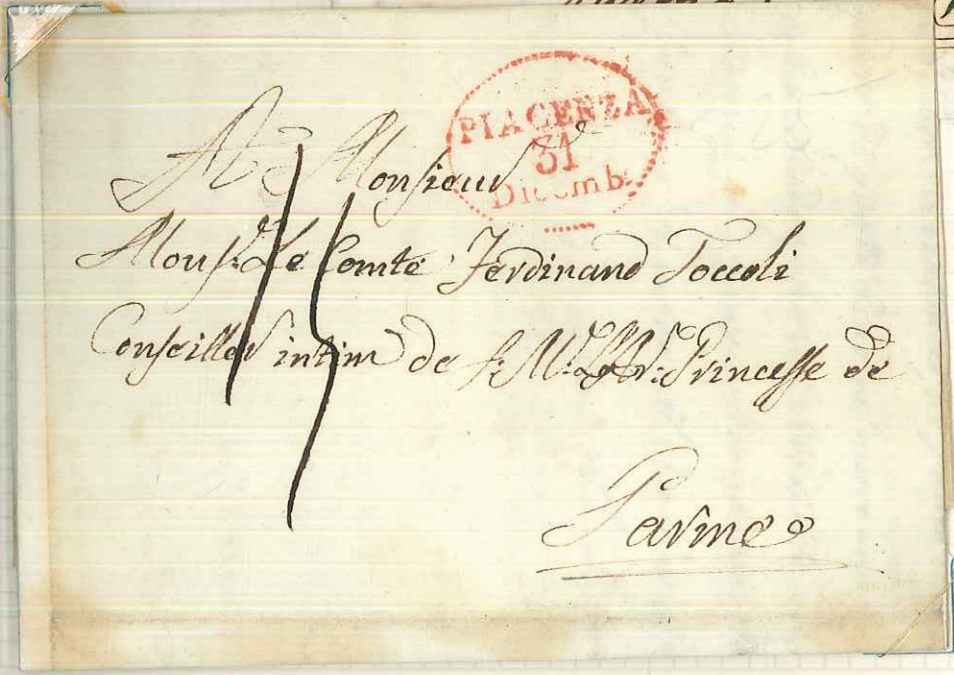 PIACENZA
31
Dicemb.
A Monsieur
Mons.r Le Comte Ferdinand Toccoli
Conseiller intim de S. M. Princesse de
Parme
15